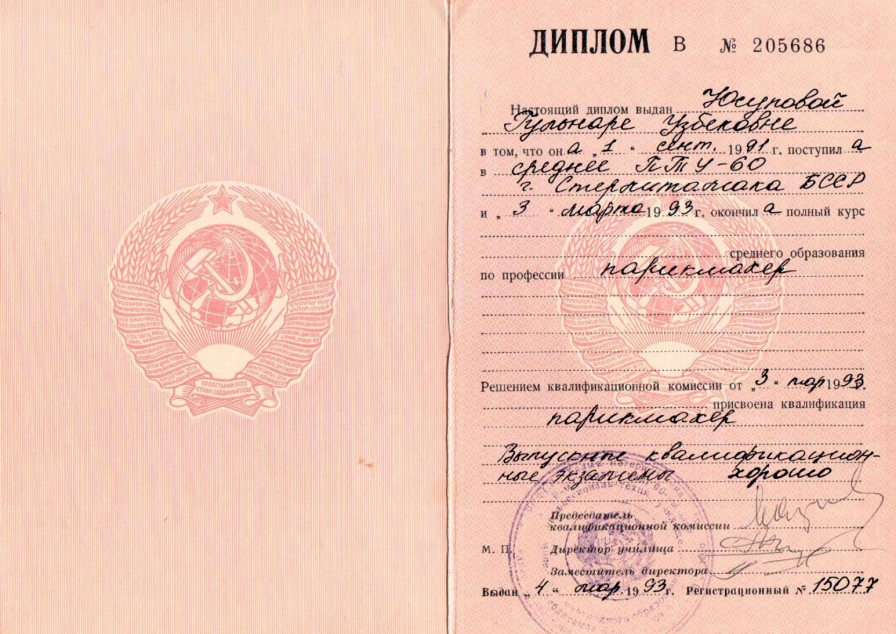 ДИПЛОМ В № 205686
Настоящий диплом выдан Юсуповой
Гульнаре Узбековне
в том, что она „1“ сент. 1991 г. поступила
в среднее ПТУ-60
г. Стерлитамака БССР
и „3“ марта 1993 г. окончила полный курс
среднего образования
по профессии парикмахер
Решением квалификационной комиссии от „3“ мар 1993.
присвоена квалификация
парикмахер
Выпускные квалификацион-
ные экзамены хорошо
Председатель
квалификационной комиссии
М. П. Директор училища
Заместитель директора
Выдан „4“ мар. 1993 г. Регистрационный № 15077